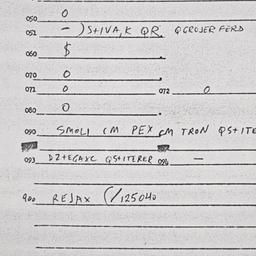 050 0
051 - ) S+IVA, K QR. QGROJER FERD
060 $
070 0
071 0 072 0
080 0
090 SMOLI CM PEX CM TRON QS+ITE
093 DZ+EGAXC QS+ITERER 096 -
900 REJAX (/125040